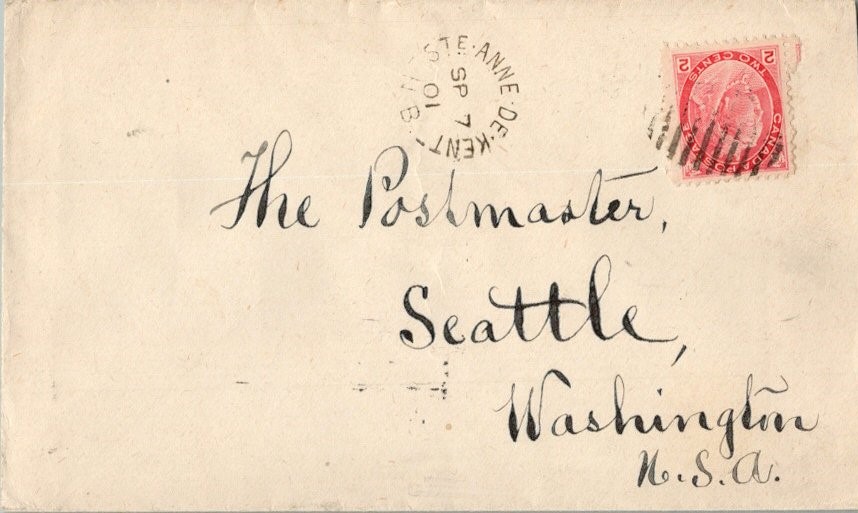 STE·ANNE·DE·KENT· N·B·
SP 7
01
2 TWO CENTS 2
CANADA POSTAGE
The Postmaster,
Seattle,
Washington
U.S.A.